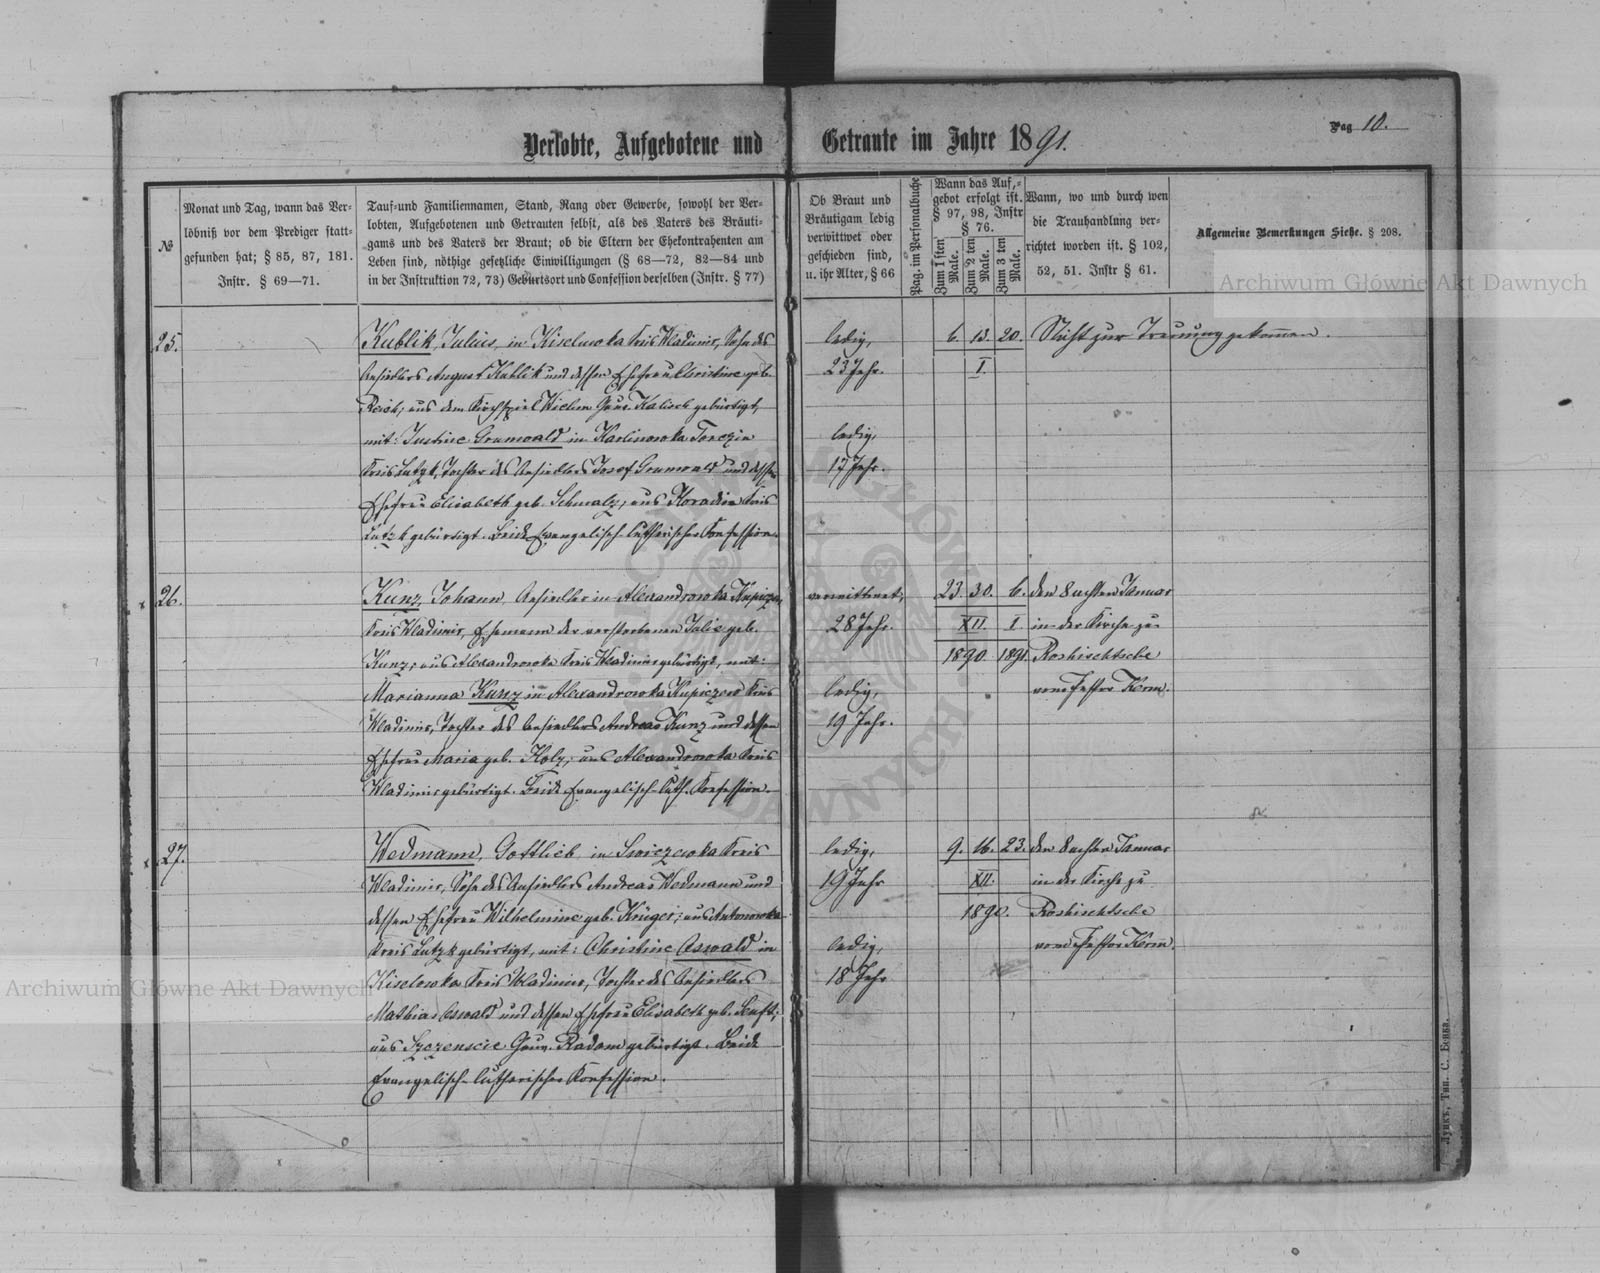 Pag 10.
Verlobte, Aufgebotene und Getraute im Jahre 1891.
№
Monat und Tag, wann das Ver-
löbniß vor dem Prediger statt-
gefunden hat; § 85, 87, 181.
Instr. § 69—71.
Tauf- und Familiennamen, Stand, Rang oder Gewerbe, sowohl der Ver-
lobten, Aufgebotenen und Getrauten selbst, als des Vaters des Bräuti-
gams und des Vaters der Braut; ob die Eltern der Ehekontrahenten am
Leben sind, nöthige gesetzliche Einwilligungen (§ 68—72, 82—84 und
in der Instruktion 72, 73) Geburtsort und Confession derselben (Instr. § 77)
Ob Braut und
Bräutigam ledig
verwittwet oder
geschieden sind,
u. ihr Alter, § 66
Pag. im Personalbuche
Wann das Auf-
gebot erfolgt ist.
§ 97, 98, Instr
§ 76.
Zum 1 sten Male.
Zum 2 ten Male.
Zum 3 ten Male.
Wann, wo und durch wen
die Trauhandlung ver-
richtet worden ist. § 102,
52, 51. Instr § 61.
Allgemeine Bemerkungen Siehe. § 208.
25.
Kublik, Julius, in Kiselowka Kreis Wladimir, Sohn des
Ansiedlers August Kublik und dessen Ehefrau Christine geb.
Reich; aus dem Kirchspiel Wielun Gouv. Kalisch gebürtigt,
mit: Justine Grunwald in Karlinowka Torczin
Kreis Lutzk, Tochter des Ansiedlers Josef Grunwald und dessen
Ehefrau Elisabeth geb. Schmalz; aus Kreis
Lutzk gebürtigt. Beide Evangelisch-Lutherischer Konfession.
ledig,
23 Jahr.
ledig,
17 Jahr.
6. 13. 20.
I.
Nicht zur Trauung gekommen.
26.
Kunz, Johann, Ansiedler in Alexandrowka Kupiczow
Kreis Wladimir, Ehemann der verstorbenen Julie geb.
Kunz; aus Alexandrowka Kreis Wladimir gebürtigt, mit:
Marianna Kunz in Alexandrowka Kupiczow Kreis
Wladimir, Tochter des Ansiedlers Andreas Kunz und dessen
Ehefrau Maria geb. Holz; aus Alexandrowka Kreis
Wladimir gebürtigt. Beide Evangelisch-Luth. Konfession.
verwittwet,
28 Jahr.
ledig,
19 Jahr.
23. 30. 6.
XII. I.
1890 1891.
den 8 achten Januar
in der Kirche zu
Roshischtsche
vom Pastor Kerm.
27.
Wedmann, Gottlieb in Swiczowka Kreis
Wladimir, Sohn des Ansiedlers Andreas Wedmann und
dessen Ehefrau Wilhelmine geb. Krüger; aus Antonowka
Kreis Lutzk gebürtigt, mit: Christine Oswald in
Kiselowka Kreis Wladimir, Tochter des Ansiedlers
Mathias Oswald und dessen Ehefrau Elisabeth geb. Senft;
aus Szczenscie Gouv. Radom gebürtigt. Beide
Evangelisch-Lutherischer Konfession.
ledig,
19 Jahr
ledig,
18 Jahr
9. 16. 23.
XII.
1890.
den 8 achten Januar
in der Kirche zu
Roshischtsche
vom Pastor Kerm.
Луцкъ, Тип. С. Бонка.
Archiwum Główne Akt Dawnych
Archiwum Główne Akt Dawnych